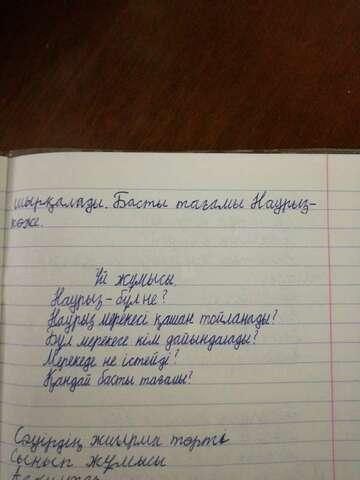 шырқалады. Басты тағамы Наурыз-
көже.
Үй жұмысы
Наурыз - бұл не?
Наурыз мерекесі қашан тойланады?
Бұл мерекеге кім дайындалады?
Мерекеде не істейді?
Қандай басты тағамы?
Сәуірдің жиырма төрті
Сынып жұмысы